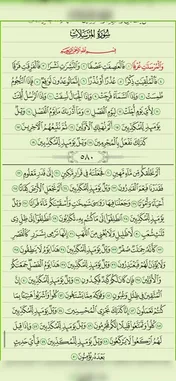 سُورَةُ الْمُرْسَلَاتِ
بِسْمِ اللَّهِ الرَّحْمَٰنِ الرَّحِيمِ
وَالْمُرْسَلَاتِ عُرْفًا ١ فَالْعَاصِفَاتِ عَصْفًا ٢ وَالنَّاشِرَاتِ نَشْرًا ٣ فَالْفَارِقَاتِ فَرْقًا
٤ فَالْمُلْقِيَاتِ ذِكْرًا ٥ عُذْرًا أَوْ نُذْرًا ٦ إِنَّمَا تُوعَدُونَ لَوَاقِعٌ ٧ فَإِذَا النُّجُومُ
طُمِسَتْ ٨ وَإِذَا السَّمَاءُ فُرِجَتْ ٩ وَإِذَا الْجِبَالُ نُسِفَتْ ١٠ وَإِذَا الرُّسُلُ أُقِّتَتْ
١١ لِأَيِّ يَوْمٍ أُجِّلَتْ ١٢ لِيَوْمِ الْفَصْلِ ١٣ وَمَا أَدْرَاكَ مَا يَوْمُ الْفَصْلِ ١٤ وَيْلٌ
يَوْمَئِذٍ لِلْمُكَذِّبِينَ ١٥ أَلَمْ نُهْلِكِ الْأَوَّلِينَ ١٦ ثُمَّ نُتْبِعُهُمُ الْآخِرِينَ ١٧
كَذَٰلِكَ نَفْعَلُ بِالْمُجْرِمِينَ ١٨ وَيْلٌ يَوْمَئِذٍ لِلْمُكَذِّبِينَ ١٩
٥٨٠
أَلَمْ نَخْلُقْكُمْ مِنْ مَاءٍ مَهِينٍ ٢٠ فَجَعَلْنَاهُ فِي قَرَارٍ مَكِينٍ ٢١ إِلَىٰ قَدَرٍ مَعْلُومٍ ٢٢
فَقَدَرْنَا فَنِعْمَ الْقَادِرُونَ ٢٣ وَيْلٌ يَوْمَئِذٍ لِلْمُكَذِّبِينَ ٢٤ أَلَمْ نَجْعَلِ الْأَرْضَ كِفَاتًا ٢٥
أَحْيَاءً وَأَمْوَاتًا ٢٦ وَجَعَلْنَا فِيهَا رَوَاسِيَ شَامِخَاتٍ وَأَسْقَيْنَاكُمْ مَاءً فُرَاتًا ٢٧
وَيْلٌ يَوْمَئِذٍ لِلْمُكَذِّبِينَ ٢٨ انْطَلِقُوا إِلَىٰ مَا كُنْتُمْ بِهِ تُكَذِّبُونَ ٢٩ انْطَلِقُوا إِلَىٰ ظِلٍّ ذِي
ثَلَاثِ شُعَبٍ ٣٠ لَا ظَلِيلٍ وَلَا يُغْنِي مِنَ اللَّهَبِ ٣١ إِنَّهَا تَرْمِي بِشَرَرٍ كَالْقَصْرِ ٣٢
كَأَنَّهُ جِمَالَتٌ صُفْرٌ ٣٣ وَيْلٌ يَوْمَئِذٍ لِلْمُكَذِّبِينَ ٣٤ هَٰذَا يَوْمُ لَا يَنْطِقُونَ ٣٥
وَلَا يُؤْذَنُ لَهُمْ فَيَعْتَذِرُونَ ٣٦ وَيْلٌ يَوْمَئِذٍ لِلْمُكَذِّبِينَ ٣٧ هَٰذَا يَوْمُ الْفَصْلِ جَمَعْنَاكُمْ
وَالْأَوَّلِينَ ٣٨ فَإِنْ كَانَ لَكُمْ كَيْدٌ فَكِيدُونِ ٣٩ وَيْلٌ يَوْمَئِذٍ لِلْمُكَذِّبِينَ ٤٠ إِنَّ
الْمُتَّقِينَ فِي ظِلَالٍ وَعُيُونٍ ٤١ وَفَوَاكِهَ مِمَّا يَشْتَهُونَ ٤٢ كُلُوا وَاشْرَبُوا هَنِيئًا بِمَا
كُنْتُمْ تَعْمَلُونَ ٤٣ إِنَّا كَذَٰلِكَ نَجْزِي الْمُحْسِنِينَ ٤٤ وَيْلٌ يَوْمَئِذٍ لِلْمُكَذِّبِينَ ٤٥
كُلُوا وَتَمَتَّعُوا قَلِيلًا إِنَّكُمْ مُجْرِمُونَ ٤٦ وَيْلٌ يَوْمَئِذٍ لِلْمُكَذِّبِينَ ٤٧ وَإِذَا قِيلَ
لَهُمُ ارْكَعُوا لَا يَرْكَعُونَ ٤٨ وَيْلٌ يَوْمَئِذٍ لِلْمُكَذِّبِينَ ٤٩ فَبِأَيِّ حَدِيثٍ
بَعْدَهُ يُؤْمِنُونَ ٥٠